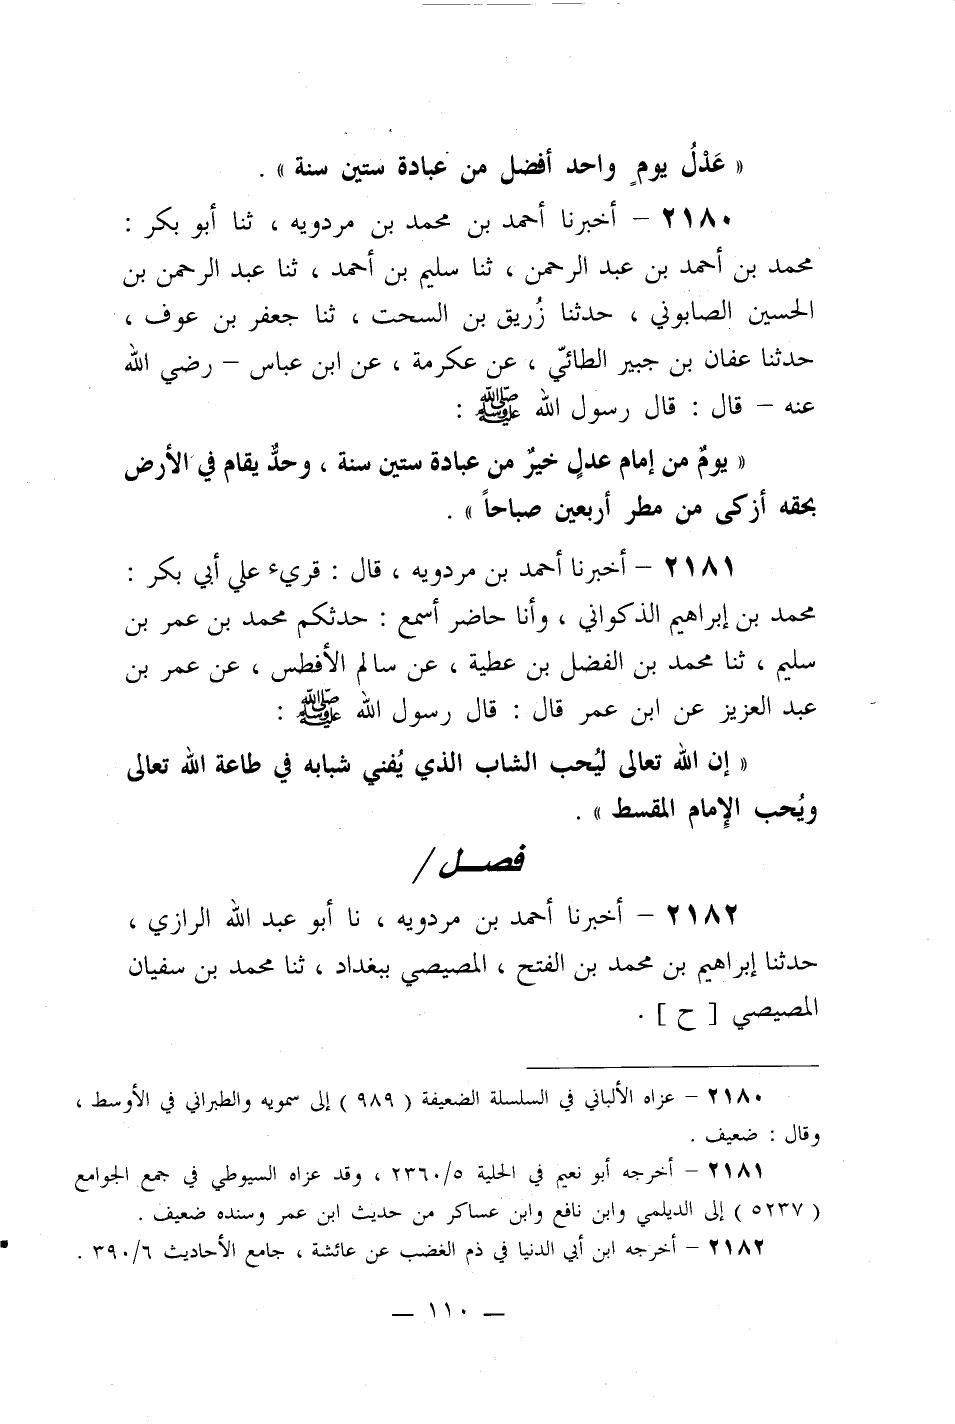 « عَدْلُ يومٍ واحد أفضل من عبادة ستين سنة » .
٢١٨٠ – أخبرنا أحمد بن محمد بن مردويه ، ثنا أبو بكر :
محمد بن أحمد بن عبد الرحمن ، ثنا سليم بن أحمد ، ثنا عبد الرحمن بن
الحسين الصابوني ، حدثنا زُريق بن السحت ، ثنا جعفر بن عوف ،
حدثنا عفان بن جبير الطائيّ ، عن عكرمة ، عن ابن عباس – رضي الله
عنه – قال : قال رسول الله ﷺ :
« يومٌ من إمام عدلٍ خيرٌ من عبادة ستين سنة ، وحدٌّ يقام في الأرض
بحقه أزكى من مطر أربعين صباحاً » .
٢١٨١ – أخبرنا أحمد بن مردويه ، قال : قريء علي أبي بكر :
محمد بن إبراهيم الذكواني ، وأنا حاضر أسمع : حدثكم محمد بن عمر بن
سليم ، ثنا محمد بن الفضل بن عطية ، عن سالم الأفطس ، عن عمر بن
عبد العزيز عن ابن عمر قال : قال رسول الله ﷺ :
« إن الله تعالى ليُحب الشاب الذي يُفني شبابه في طاعة الله تعالى
ويُحب الإمام المقسط » .
فصــل /
٢١٨٢ – أخبرنا أحمد بن مردويه ، نا أبو عبد الله الرازي ،
حدثنا إبراهيم بن محمد بن الفتح ، المصيصي ببغداد ، ثنا محمد بن سفيان
المصيصي [ ح ] .
٢١٨٠ – عزاه الألباني في السلسلة الضعيفة ( ٩٨٩ ) إلى سمويه والطبراني في الأوسط ،
وقال : ضعيف .
٢١٨١ – أخرجه أبو نعيم في الحلية ٢٣٦٠/٥ ، وقد عزاه السيوطي في جمع الجوامع
( ٥٢٣٧ ) إلى الديلمي وابن نافع وابن عساكر من حديث ابن عمر وسنده ضعيف .
٢١٨٢ – أخرجه ابن أبي الدنيا في ذم الغضب عن عائشة ، جامع الأحاديث ٣٩٠/٦ .
— ١١٠ —